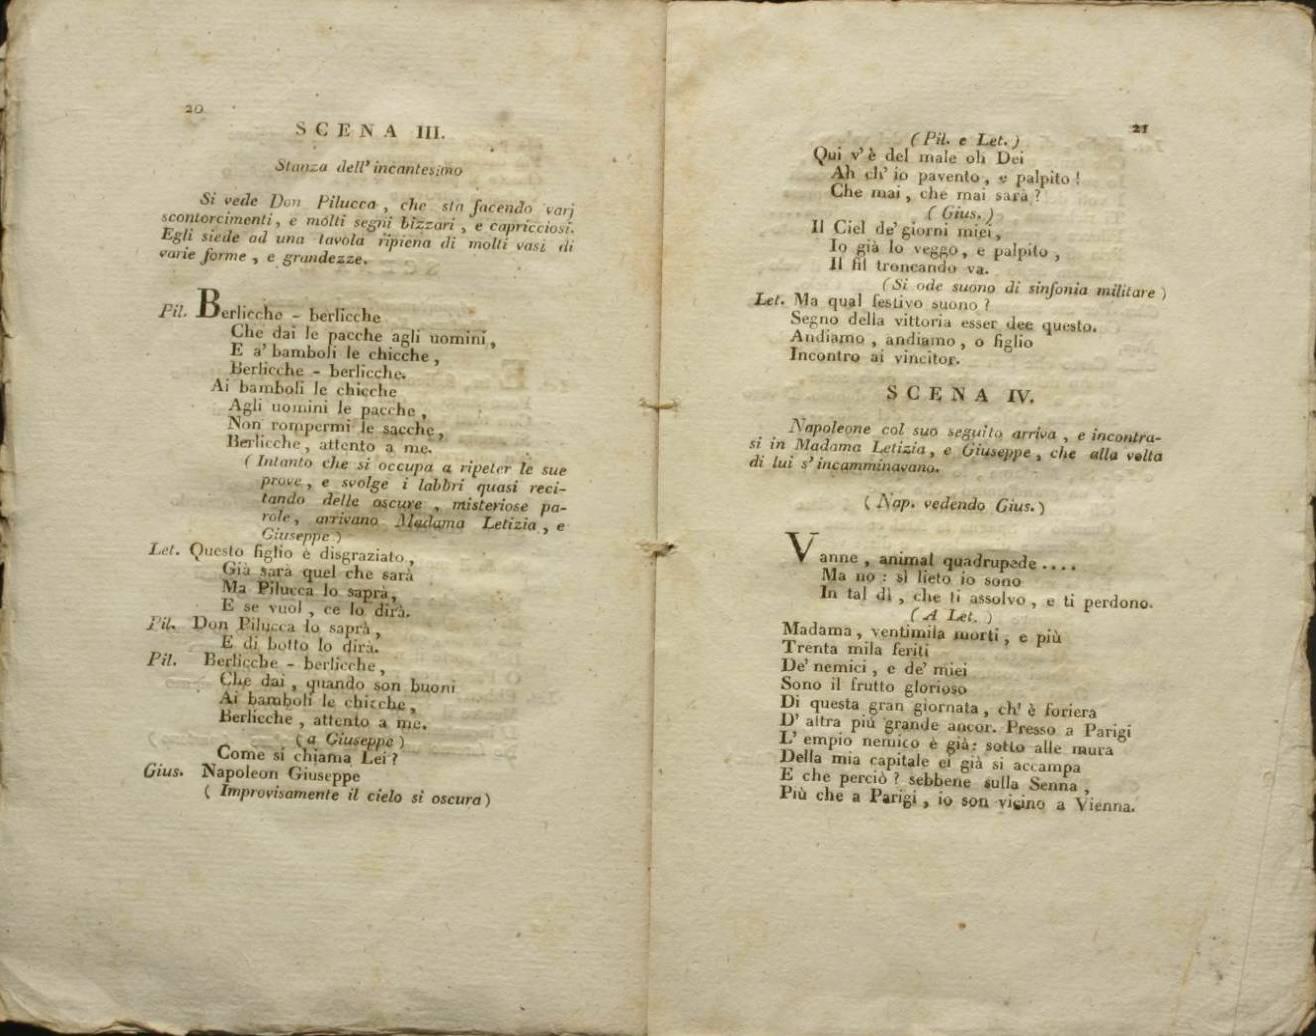 20
SCENA III.
Stanza dell' incantesimo
Si vede Don Pilucca , che sta facendo varj
scontorcimenti , e molti segni bizzari , e capricciosi.
Egli siede ad una tavola ripiena di molti vasi di
varie forme , e grandezze.
Pil. Berlicche - berlicche
Che dai le pacche agli uomini ,
E a' bamboli le chicche ,
Berlicche - berlicche.
Ai bamboli le chicche
Agli uomini le pacche ,
Non rompermi le sacche ,
Berlicche , attento a me.
( Intanto che si occupa a ripeter le sue
prove , e svolge i labbri quasi reci-
tando delle oscure , misteriose pa-
role , arrivano Madama Letizia , e
Giuseppe )
Let. Questo figlio è disgraziato ,
Già sarà quel che sarà
Ma Pilucca lo saprà ,
E se vuol , ce lo dirà.
Pil. Don Pilucca lo saprà ,
E di botto lo dirà.
Pil. Berlicche - berlicche ,
Che dai , quando son buoni
Ai bamboli le chicche ,
Berlicche , attento a me.
( a Giuseppe )
Come si chiama Lei ?
Gius. Napoleon Giuseppe
( Improvisamente il cielo si oscura )
21
( Pil. e Let. )
Qui v' è del male oh Dei
Ah ch' io pavento , e palpito !
Che mai , che mai sarà ?
( Gius. )
Il Ciel de' giorni miei ,
Io già lo veggo , e palpito ,
Il fil troncando va.
( Si ode suono di sinfonia militare )
Let. Ma qual festivo suono ?
Segno della vittoria esser dee questo.
Andiamo , andiamo , o figlio
Incontro ai vincitor.
SCENA IV.
Napoleone col suo seguito arriva , e incontra-
si in Madama Letizia , e Giuseppe , che alla volta
di lui s' incamminavano.
( Nap. vedendo Gius. )
Vanne , animal quadrupede ....
Ma no : sì lieto io sono
In tal dì , che ti assolvo , e ti perdono.
( A Let. )
Madama , ventimila morti , e più
Trenta mila feriti
De' nemici , e de' miei
Sono il frutto glorioso
Di questa gran giornata , ch' è foriera
D' altra più grande ancor. Presso a Parigi
L' empio nemico è già : sotto alle mura
Della mia capitale ei già si accampa
E che perciò ? sebbene sulla Senna ,
Più che a Parigi , io son vicino a Vienna.